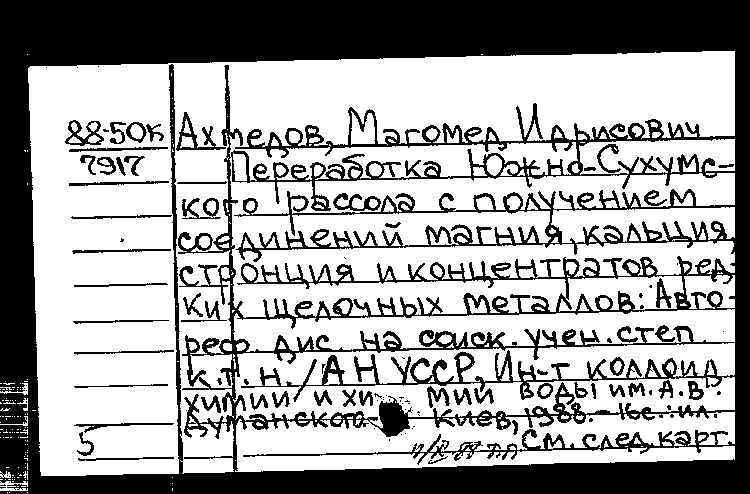 88-50к Ахмедов, Магомед Идрисович
7917 Переработка Южно-Сухумс-
кого рассола с получением
соединений магния, кальция,
стронция и концентратов ред-
ких щелочных металлов: Авто-
реф. дис. на соиск. учен. степ.
к.т.н. / АН УССР, Ин-т коллоид.
химии и химии воды им. А.В.
Думанского. Киев, 1988. - 16с.: ил.
5 См. след. карт.